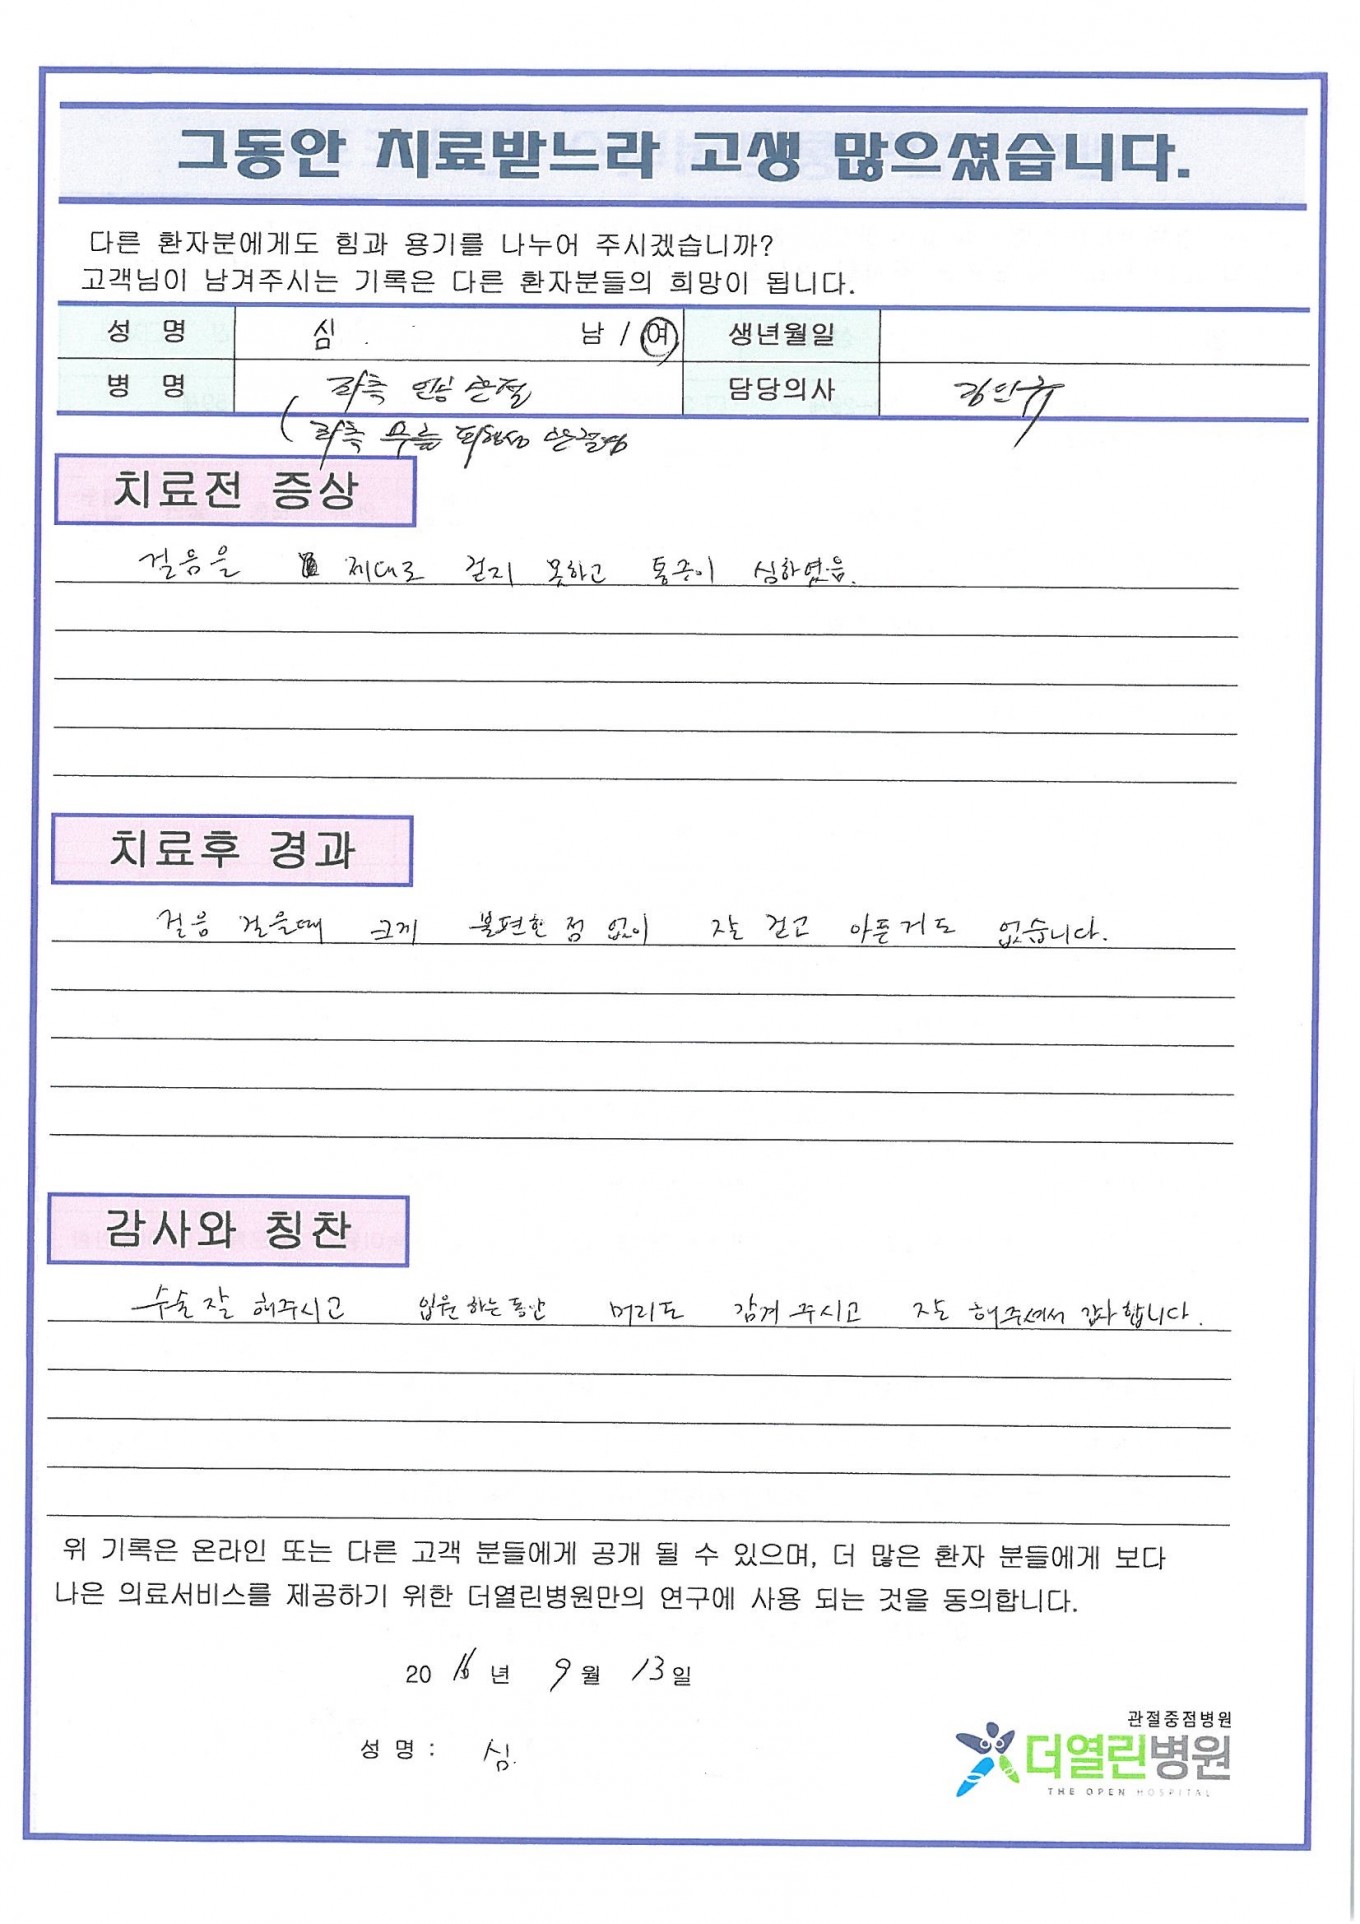 그동안 치료받느라 고생 많으셨습니다.
다른 환자분에게도 힘과 용기를 나누어 주시겠습니까?
고객님이 남겨주시는 기록은 다른 환자분들의 희망이 됩니다.
성 명 심 남 / 여 생년월일
병 명 좌측 연골 손절 담당의사 김인규
( 좌측 무릎 퇴행성
치료전 증상
걸음을 제대로 걷지 못하고 통증이 심하였음.
치료후 경과
걸음 걸을때 크게 불편한 점 없이 잘 걷고 아픈거도 없습니다.
감사와 칭찬
수술 잘 해주시고 입원 하는 동안 머리도 감겨 주시고 잘 해주셔서 감사합니다.
위 기록은 온라인 또는 다른 고객 분들에게 공개 될 수 있으며, 더 많은 환자 분들에게 보다
나은 의료서비스를 제공하기 위한 더열린병원만의 연구에 사용 되는 것을 동의합니다.
20 16 년 9 월 13 일
관절중점병원
성 명 : 심
더열린병원
THE OPEN HOSPITAL